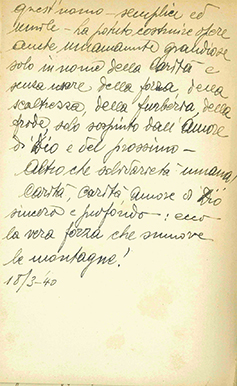 quest'uomo - semplice ed
umile - ha potuto costruire opere
umanamente grandiose
solo in nome della Carità e
senza usare della forza, della
scaltrezza della furberia, della
frode, solo sospinto dall'Amore
di Dio e del prossimo -
Altro che solidarietà umana,
Carità, Carità Amore di Dio
sincero e profondo: ecco
la vera forza che smuove
le montagne!
18/3-40